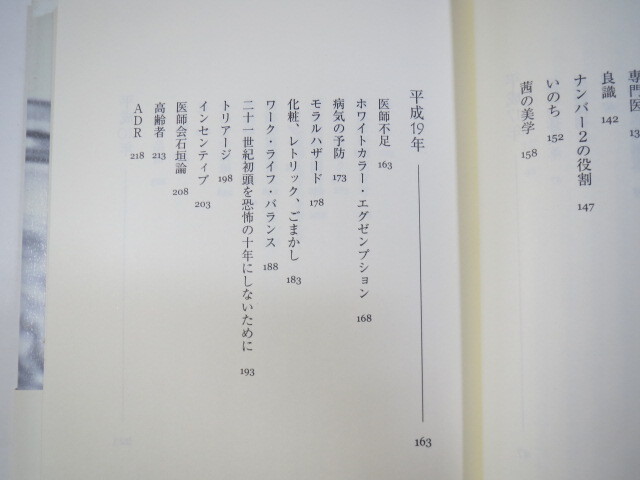 専門医
良識 142
ナンバー2の役割 147
いのち 152
茜の美学 158
平成19年 163
医師不足 163
ホワイトカラー・エグゼンプション 168
病気の予防 173
モラルハザード 178
化粧、レトリック、ごまかし 183
ワーク・ライフ・バランス 188
二十一世紀初頭を恐怖の十年にしないために 193
トリアージ 198
インセンティブ 203
医師会石垣論 208
高齢者 213
ADR 218